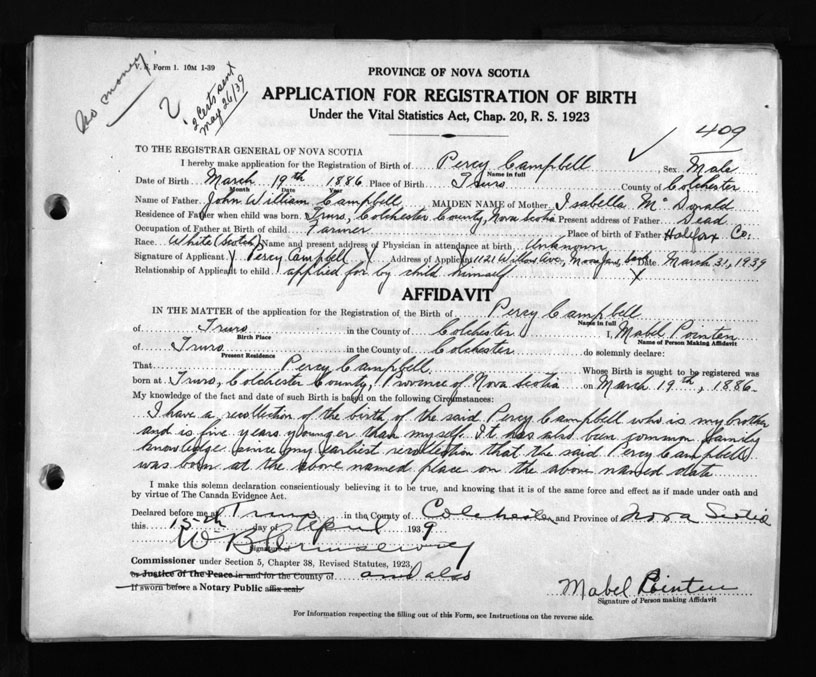 No money
V. S. Form 1. 10M 1-39
2 Certs sent
May 26/39
PROVINCE OF NOVA SCOTIA
APPLICATION FOR REGISTRATION OF BIRTH
Under the Vital Statistics Act, Chap. 20, R. S. 1923
409
TO THE REGISTRAR GENERAL OF NOVA SCOTIA
I hereby make application for the Registration of Birth of Percy Campbell Sex Male
Name in full
Date of Birth March 19th 1886 Place of Birth Truro County of Colchester
Month Day Year
Name of Father John William Campbell MAIDEN NAME of Mother Isabella McDonald
Residence of Father when child was born Truro, Colchester County, Nova Scotia Present address of Father Dead
Occupation of Father at Birth of child Farmer Place of birth of Father Halifax Co.
Race White (Scotch) Name and present address of Physician in attendance at birth Unknown
Signature of Applicant X Percy Campbell X Address of Applicant 1121 Willow Ave, Moose Jaw, Sask Date March 31, 1939
Relationship of Applicant to child applied for by child himself X
AFFIDAVIT
IN THE MATTER of the application for the Registration of the Birth of Percy Campbell
Name in full
of Truro in the County of Colchester I, Mabel Pointen
Birth Place Name of Person Making Affidavit
of Truro in the County of Colchester do solemnly declare:
Present Residence
That Percy Campbell Whose Birth is sought to be registered was
born at Truro, Colchester County, Province of Nova Scotia on March 19th, 1886
My knowledge of the fact and date of such Birth is based on the following Circumstances:
I have a recollection of the birth of the said Percy Campbell who is my brother
and is five years younger than myself. It has also been common family
knowledge since my earliest recollection that the said Percy Campbell
was born at the above named place on the above named date
I make this solemn declaration conscientiously believing it to be true, and knowing that it is of the same force and effect as if made under oath and
by virtue of The Canada Evidence Act.
Declared before me at Truro in the County of Colchester and Province of Nova Scotia
this 15th day of April 1939
W B
Signature
Commissioner under Section 5, Chapter 38, Revised Statutes, 1923,
or Justice of the Peace in and for the County of and also
If sworn before a Notary Public affix seal.
Mabel Pointen
Signature of Person making Affidavit
For Information respecting the filling out of this Form, see Instructions on the reverse side.